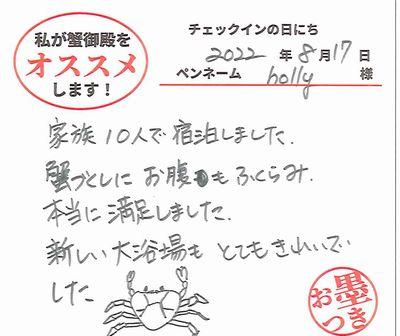 私が蟹御殿を
オススメ
します！
チェックインの日にち
2022 年 8 月 17 日
ペンネーム holly 様
家族10人で宿泊しました.
蟹づくしに お腹も ふくらみ.
本当に満足しました.
新しい大浴場も とてもきれいで
した
お墨つき